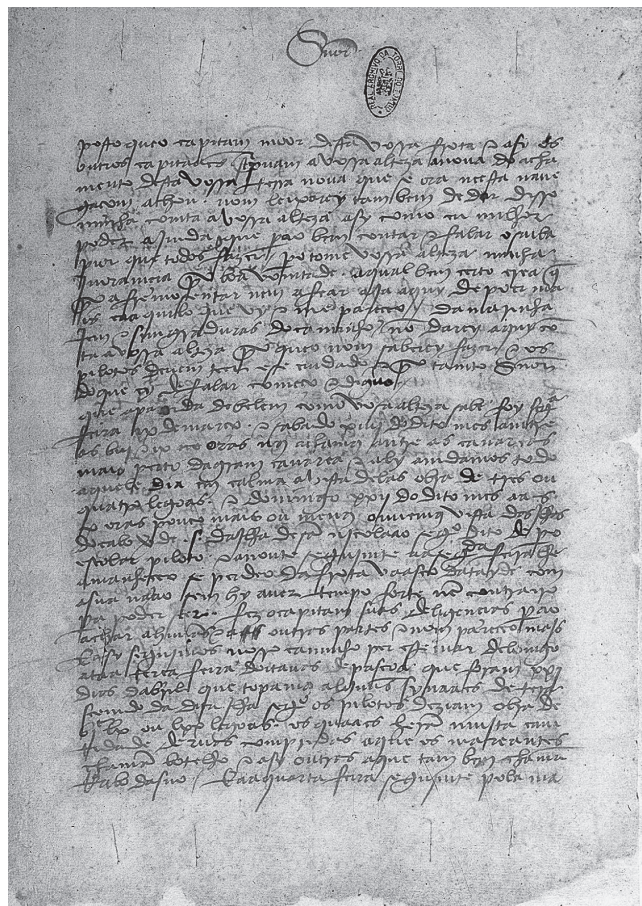 Snõr
REAL ARCHIVO DA TORRE DO TOMBO
posto queo capitam moor desta vossa frota e asy os
outros capitaães screpuam avossa alteza anoua do acha
mento desta vossa terra noua que se ora neesta naue
gaçom achou. nom leixarey tambem de dar disso
minha comta avossa alteza asy como eu milhor
poder ajmda que perao bem contar e falar osaiba
pior que todos fazer. / pero tome vossa alteza minha
jnoramçia por boa vomtade. aqual bem certo crea q̃
por afremosentar nem afear aja aquy de poer ma
is caaquilo que vy e me pareçeo. / damarinha
jem e simgraduras do caminho nõ darey aquy cõ
ta avossa alteza por queo nom saberey fazer e os
pilotos deuem teer ese cuidado e por tanto Snõr
do que ey de falar começo e diguo
que apartida debelem como vosa alteza sabe foy segª
feira ix demarço. e sabado xiiij do dito mes amtre
as biij e ix oras nos achamos amtre as canareas
mais perto dagram canarea e aly amdamos todo
aquele dia em calma avista delas obra de tres ou
quatro legoas. e domingo xxij do dito mes aas
x oras pouco mais ou menos ouuemos vista das jlhas
do cabo verde .s. dajlha de sã njcolaao segº dito de pº
escolar piloto. e anoute segujmte aa segda feira lhe
amanheçeo se perdeo da frota vaasco datayde com
asua naao sem hy auer tempo forte nẽ contrairo
pa poder seer. fez ocapitam suas deligençias perao
achar ahuũas e a outras partes e nom pareçeo majs
E asy segujmos nosso caminho per este mar delomgo
ataa terça feira doitauas de pascoa que foram xxj
dias dabril que topamos alguũs synaaes de tera
seemdo da dita jlha segº os pilotos deziam obra de
bjc lx ou lxx legoas. os quaaes herã mujta cam
tidade deruas compridas aque os mareantes
chamã botelho e asy outras aque tam bem chamã
rrabo dasno. / E aaquarta feira segujmte pola ma